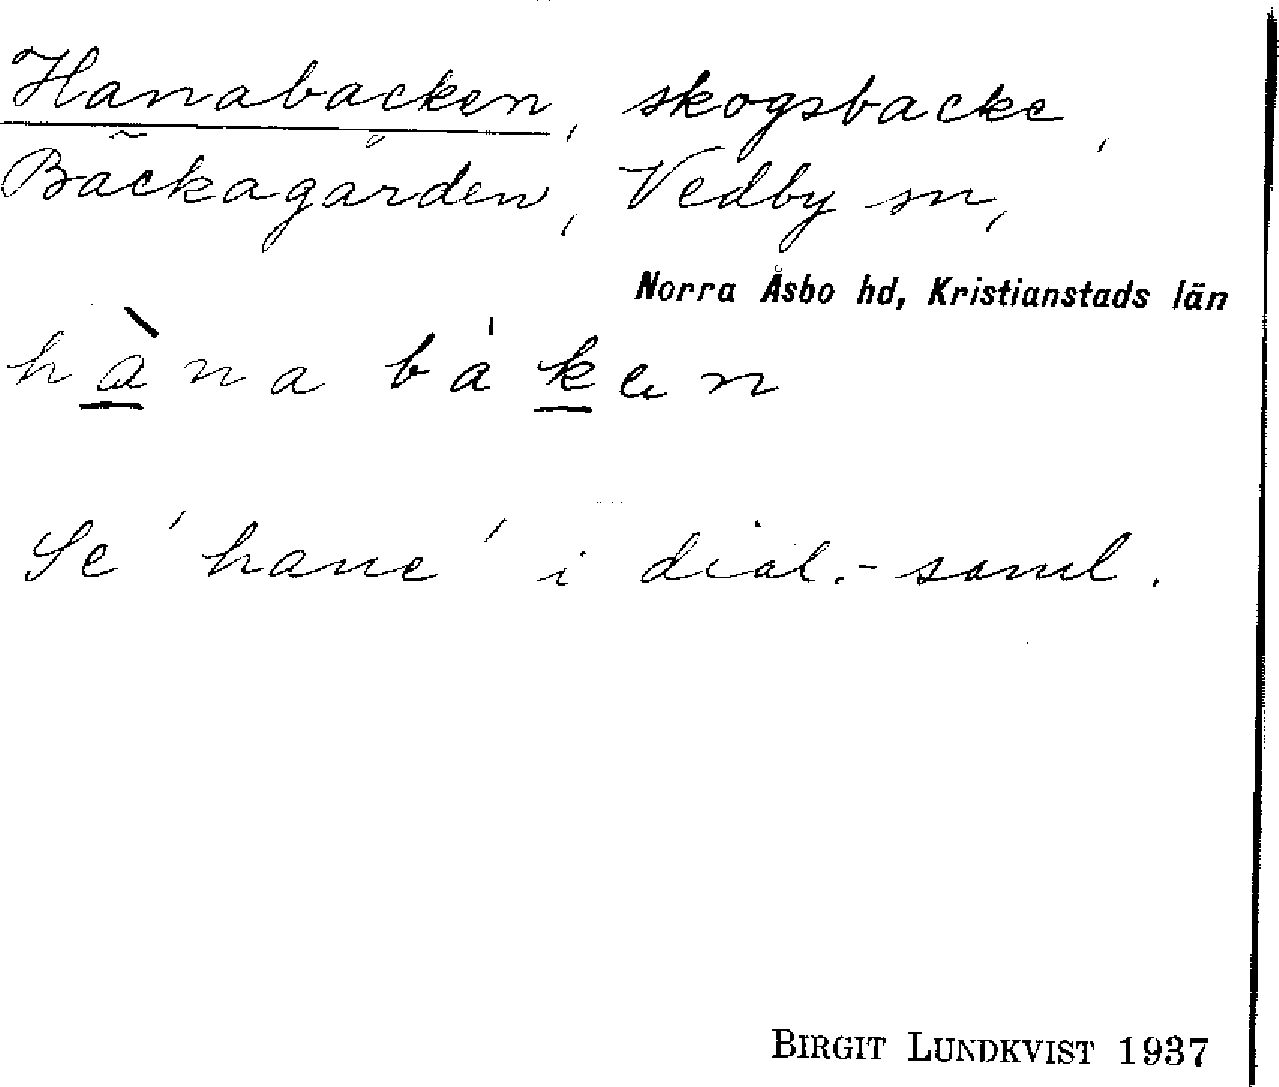 Hanabacken, skogsbacke,
Bäckagården, Vedby sn,
Norra Åsbo hd, Kristianstads län
hàna báken
Se 'hane' i dial.-saml.
BIRGIT LUNDKVIST 1937